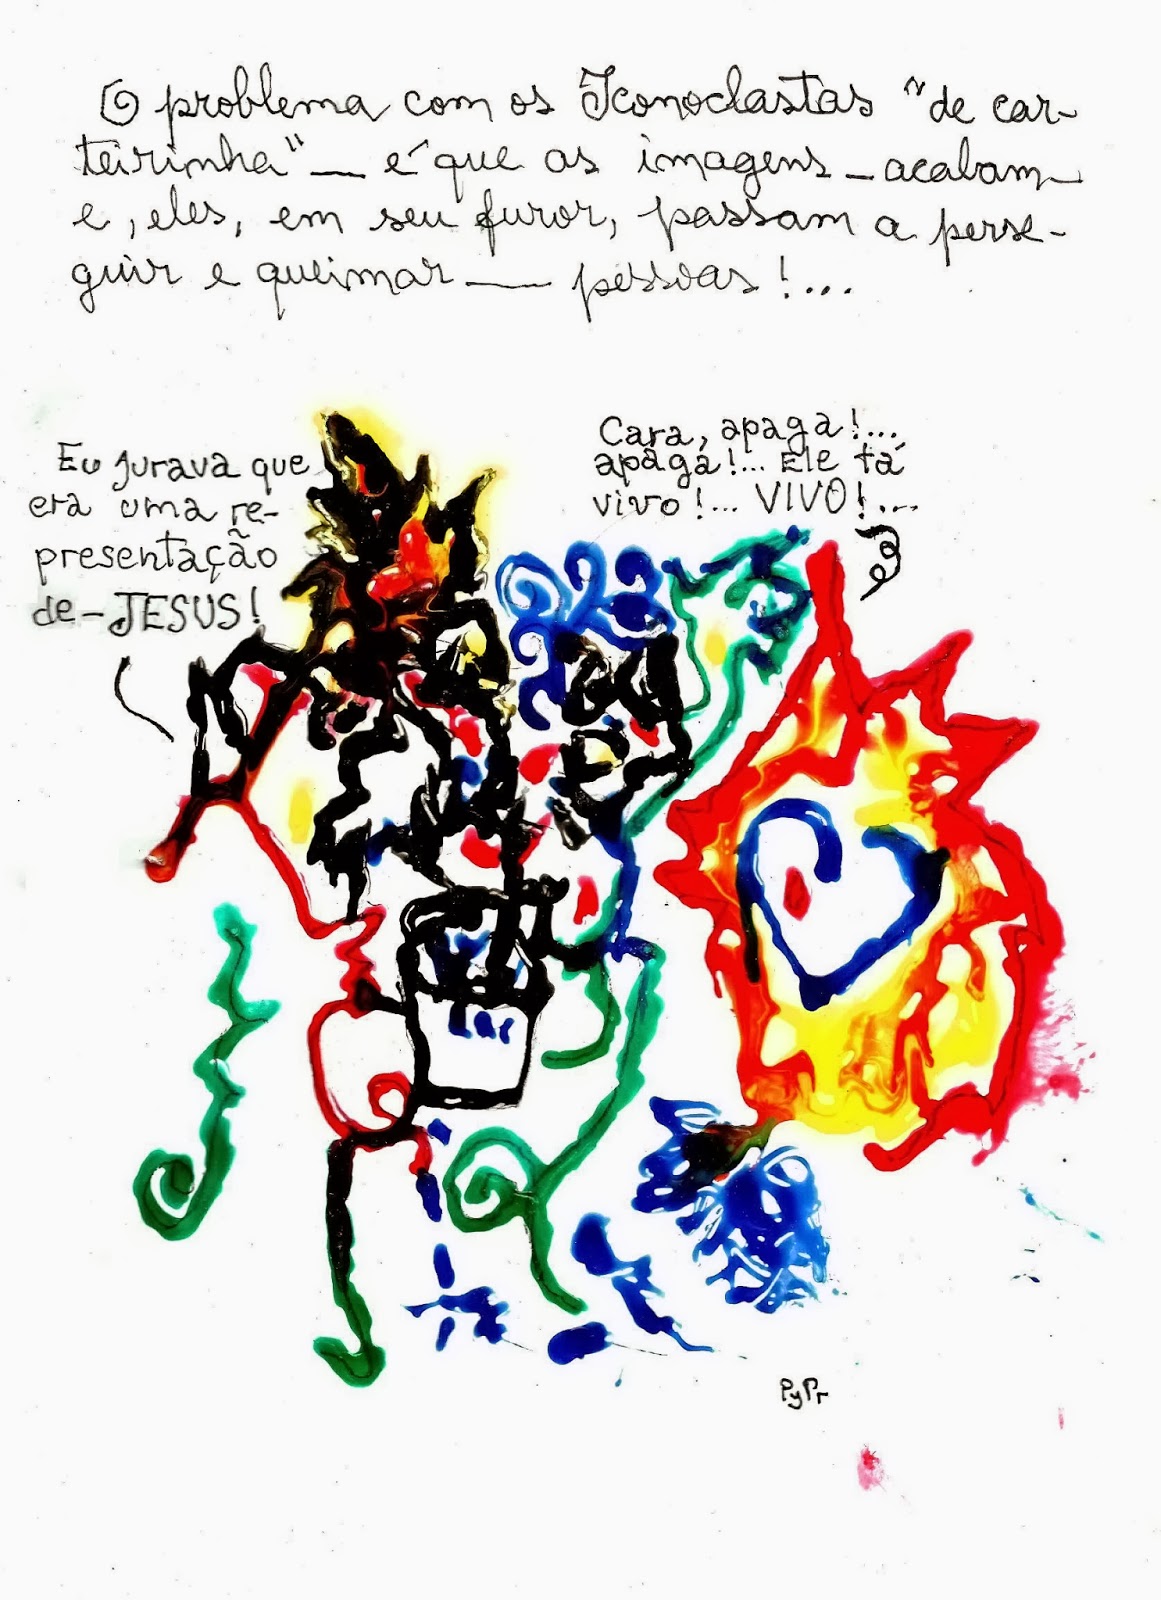 O problema com os Iconoclastas "de car-
teirinha" — é que as imagens - acabam
e, eles, em seu furor, passam a perse-
guir e queimar — pessoas!...
Eu jurava que
era uma re-
presentação
de - JESUS!
Cara, apaga!...
apaga!... Ele tá
vivo!... VIVO!...
PyPr